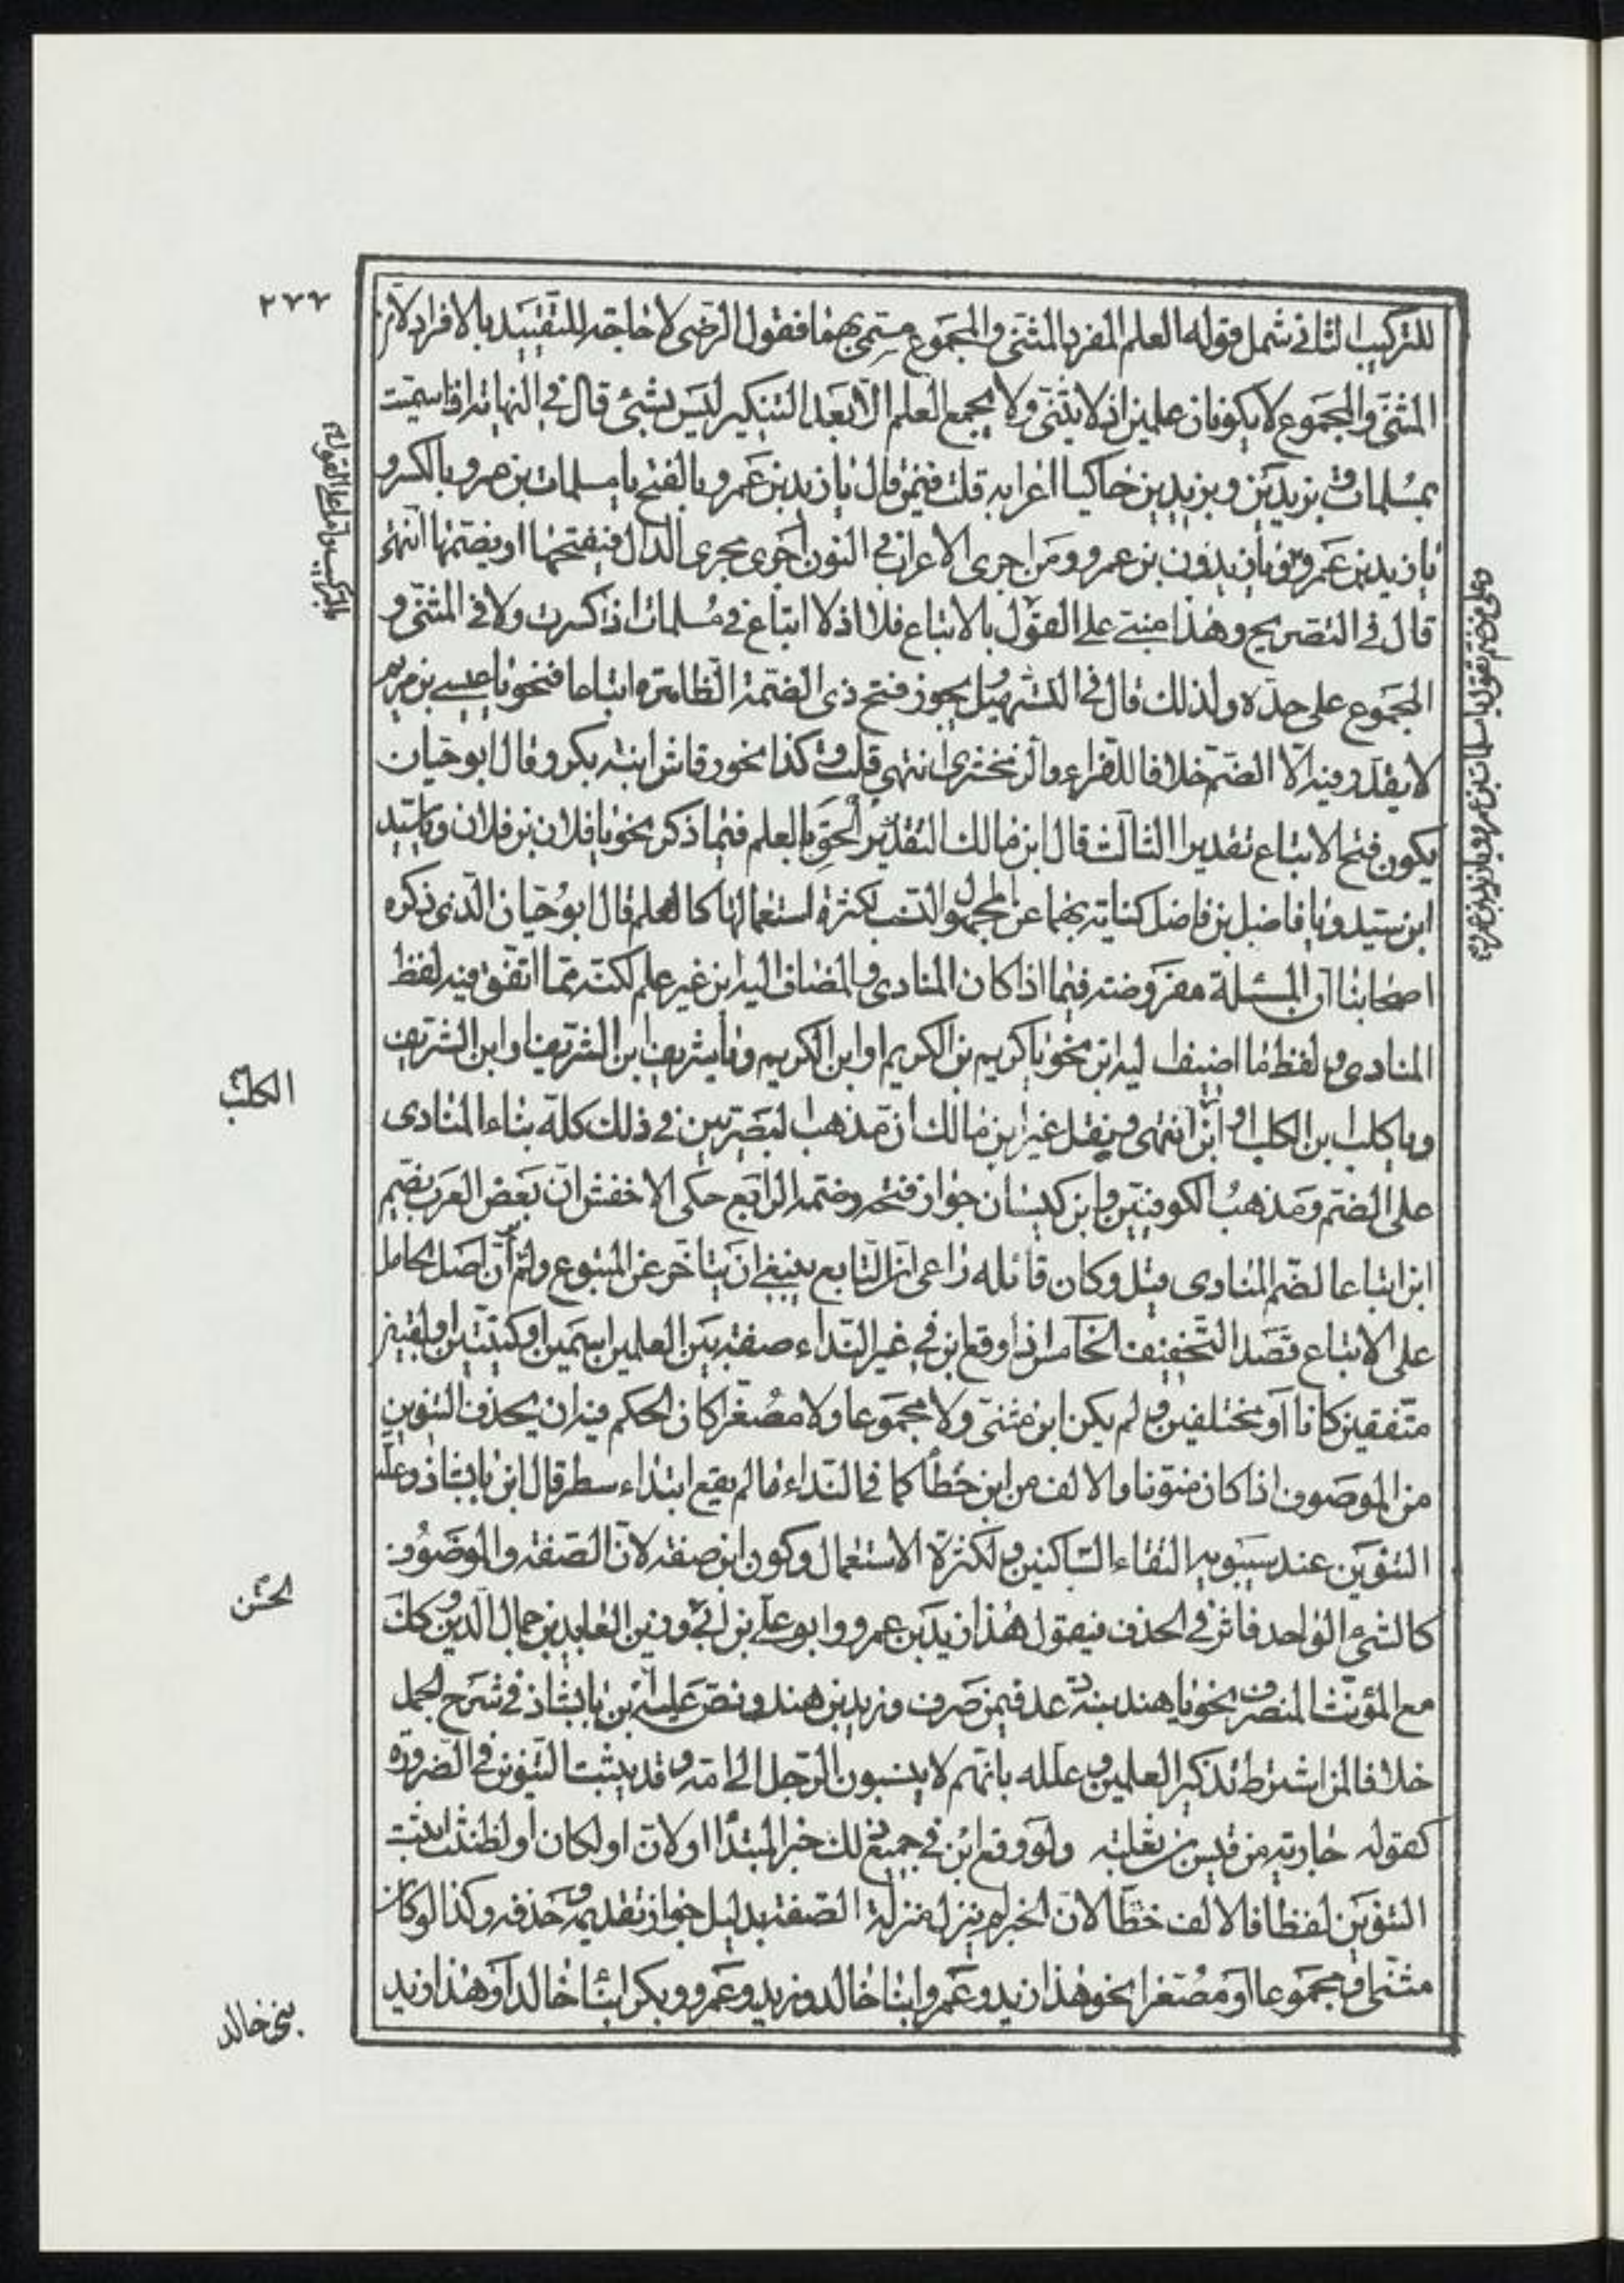 ٢٧٧
للتركيب الثاني شمل قوله العلم المفرد المثنى والمجموع مسمى بهما فقول الرضى لا حاجة للتقييد بالافراد لان
المثنى والمجموع لا يكونان علمين اذ لا يثنى ولا يجمع العلم الا بعد التنكير ليس بشئ قال في النهاية اذا سميت
بمسلمات وبزيدين وبزيدين حاكيا اعرابه قلت فيمن قال يا زيد بن عمرو بالفتح يا مسلمات بن عمرو بالكسر و
يا زيدين بن عمرو ويا زيدون بن عمرو ومن اجرى الاعراب في النون اجرى مجرى الدال فيفتحها او يضمها انتهى
قال في التصريح وهذا مبنى على القول بالاتباع فلا اذ لا اتباع في مسلمات اذا كسرت ولا في المثنى و
المجموع على حده ولذلك قال في التسهيل يجوز فتح ذي الضمة الظاهرة اتباعا فنحو يا عيسى بن مريم
لا يقدر فيه الا الضم خلافا للفراء والزمخشرى انتهى قلت وكذا نحو رقاش ابنة بكر وقال ابو حيان
يكون فتح الاتباع تقديرا الثالث قال ابن مالك التقدير الحق بالعلم فيما ذكر نحو يا فلان بن فلان ويا سيد
ابن سيد ويا فاضل بن فاضل كناية بهما عن المجهول والنسب لكثرة استعمالها كالعلم قال ابو حيان الذى ذكره
اصحابنا ان المسئلة مفروضة فيما اذا كان المنادى والمضاف اليه ابن غير علم لكنه مما اتفق فيه لفظ
المنادى ولفظ ما اضيف اليه ابن نحو يا كريم بن الكريم او ابن الكريم ويا شريف بن الشريف او ابن الشريف
ويا كلب ابن الكلب او ابن انتهى ونقل غير ابن مالك ان مذهب البصريين في ذلك كله بناء المنادى
الكلب
على الضم ومذهب الكوفيين وابن كيسان جواز فتحه وضمه الرابع حكى الاخفش ان بعض العرب يضم
ابن اتباعا لضم المنادى قيل وكان قائله راعى ان التابع ينبغى ان يتاخر عن المتبوع ولم ان اصل الحامل
على الاتباع قصد التخفيف الخامس اذا وقع ابن في غير النداء صفة بين العلمين اسمين او كنيتين او لقبين
متفقين كانا او مختلفين ولم يكن ابن مثنى ولا مجموعا ولا مصغرا كان الحكم فيه ان يحذف التنوين
من الموصوف اذا كان منونا والالف من ابن خطا كما في النداء ما لم يقع ابتداء سطر قال ابن بابشاذ وعلة
التنوين عند سيبويه التقاء الساكنين ولكثرة الاستعمال وكون ابن صفة لان الصفة والموصوف
كالشئ الواحد فاثر في الحذف فيقول هذا زيد بن عمرو وابو على بن ابى وزين العابدين جمال الدين وكك
الحسن
مع المؤنث المنصرف نحو يا هند بنة عد فيمن صرف وزيد بن هند ونص عليه ابن بابشاذ في شرح الجمل
خلافا لمن اشترط تذكير العلمين وعلله بانهم لا ينسبون الرجل الى امه وقد يثبت التنوين في الضرورة
كقوله جارية من قيس بن ثعلبة ولو وقع ابن في جميع ذلك خبر المبتدا او لان او لكان او لظننت اثبت
التنوين لفظا فالالف خطا لان الخبر لم ينزل منزلة الصفة بدليل جواز تقديمه وحذفه وكذا لو كان
مثنى او مجموعا او مصغرا نحو هذا زيد وعمرو ابنا خالد وزيد وعمرو وبكر ابنا خالد او هذا زيد
بنى خالد